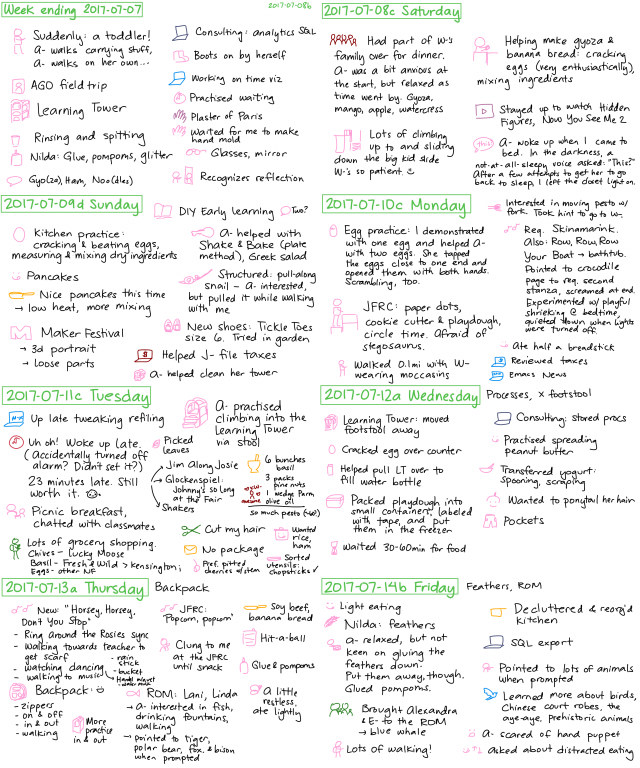 Week ending 2017-07-07
2017-07-08b
Suddenly: a toddler!
a- walks carrying stuff,
a- walks on her own...
AGO field trip
Learning Tower
Rinsing and spitting
Nilda: Glue, pompoms, glitter
Gyo(za), Ham, Noo(dles)
Consulting: analytics SQL
Boots on by herself
Working on time viz
Practised waiting
Plaster of Paris
Waited for me to make
hand mold
Glasses, mirror
Recognizes reflection
2017-07-08c Saturday
Had part of W-'s
family over for dinner.
a- was a bit anxious at
the start, but relaxed as
time went by. Gyoza,
mango, apple, watercress
Lots of climbing
up to and sliding
down the big kid slide
W-'s so patient.
Helping make gyoza &
banana bread: cracking
eggs (very enthusiastically),
mixing ingredients
Stayed up to watch Hidden
Figures, Now You See Me 2
This?
a- woke up when I came
to bed. In the darkness, a
not-at-all-sleepy voice asked: "This?"
After a few attempts to get her to go
back to sleep, I left the closet light on.
2017-07-09d Sunday
Kitchen practice:
cracking & beating eggs,
measuring & mixing dry ingredients
Pancakes
Nice pancakes this time
→ low heat, more mixing
Maker Festival
→ 3d portrait
→ loose parts
DIY Early Learning
Two?
a- helped with
Shake & Bake (plate
method), Greek salad
Structured: pull-along
snail - a- interested,
but pulled it while walking
with me
New shoes: Tickle Toes
size 6. Tried in garden
Helped J- file taxes
a- helped clean her tower
2017-07-10c Monday
Egg practice: I demonstrated
with one egg and helped a-
with two eggs. She tapped
the eggs close to one end and
opened them with both hands.
Scrambling, too.
JFRC: paper dots,
cookie cutter & playdough,
circle time. Afraid of
stegosaurus.
Walked 0.1mi with W-
wearing moccasins
Interested in moving pesto w/
fork. Took hint to go to W-.
Req. Skinamarink.
Also: Row, Row, Row
Your Boat → bathtub.
Pointed to crocodile
page to req. second
stanza, screamed at end.
Experimented w/ playful
shrieking @ bedtime,
quieted down when lights
were turned off.
Ate half a breadstick
Reviewed taxes
Emacs News
2017-07-11c Tuesday
Up late tweaking refiling
Uh oh! Woke up late.
(accidentally turned off
alarm? Didn't set it?)
23 minutes late. Still
worth it.
Picnic breakfast,
chatted with classmates
Lots of grocery shopping.
Chives - Lucky Moose
Basil - Fresh & Wild > Kensington;
Eggs - other NF
a- practised
climbing into the
Learning Tower
via stool
Picked
leaves
Jim Along Josie
Glockenspiel:
Johnny's so Long
at the Fair
Shakers
6 bunches
basil
3 packs
pine nuts
1 wedge Parm
olive oil
so much pesto
Cut my hair
No package
Pref. pitted
cherries w/ stem
Wanted
rice,
ham
Sorted
utensils:
chopsticks ✓
2017-07-12a Wednesday
Processes, x footstool
Learning Tower: moved
footstool away
Cracked egg over counter
Helped pull LT over to
fill water bottle
Packed playdough into
small containers, labeled
with tape, and put
them in the freezer
Waited 30-60min for food
Consulting: stored procs
Practised spreading
peanut butter
Transferred yogurt:
spooning, scraping
Wanted to ponytail her hair
Pockets
2017-07-13a Thursday
Backpack
New: "Horsey, Horsey,
Don't You Stop"
- Ring around the Rosies sync
- Walking towards teacher to
get scarf
- watching dancing
- walking to music
- rain
stick
- bucket
Backpack:
- zippers
- on & off
- in & out
- walking
More
practice
in & out
JFRC:
"Popcorn, popcorn"
Clung to me
at the JFRC
until snack
ROM: Lani, Linda
→ a- interested in fish,
drinking fountains,
walking
→ pointed to tiger,
polar bear, fox, & bison
when prompted
Soy beef,
banana bread
Hit-a-ball
Glue & pompoms
a little
restless,
ate lightly
2017-07-14b Friday
Feathers, ROM
Light eating
Nilda: feathers
a- relaxed, but not
keen on gluing the
feathers down.
Put them away, though.
Glued pompoms.
Brought Alexandra
& E- to the ROM
→ blue whale
Lots of walking!
Decluttered & reorg'd
kitchen
SQL export
Pointed to lots of animals
when prompted
Learned more about birds,
Chinese court robes, the
aye-aye, prehistoric animals
a- scared of hand puppet
asked about distracted eating